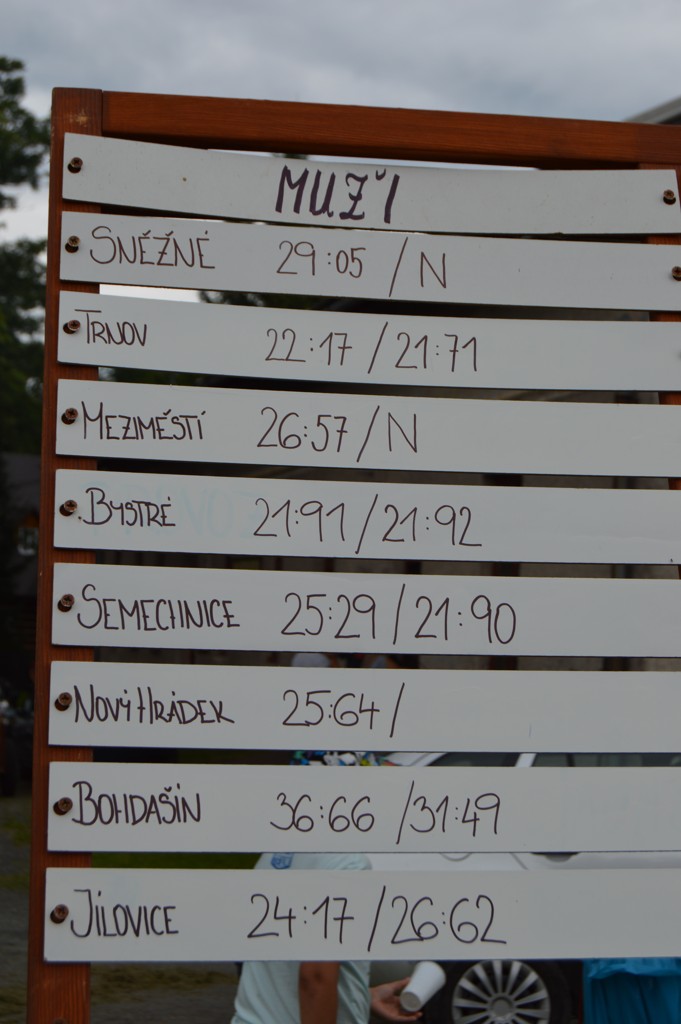 MUŽI
SNĚŽNÉ 29:05 / N
TRNOV 22:17 / 21:71
MEZIMĚSTÍ 26:57 / N
BYSTRÉ 21:91 / 21:92
SEMECHNICE 25:29 / 21:90
NOVÝ HRÁDEK 25:64 /
BOHDAŠÍN 36:66 / 31:49
JÍLOVICE 24:17 / 26:62